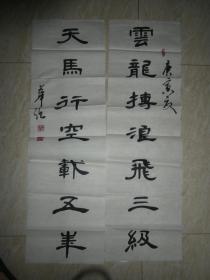 庚寅夏
雲龍搏浪飛三級
天馬行空載五車